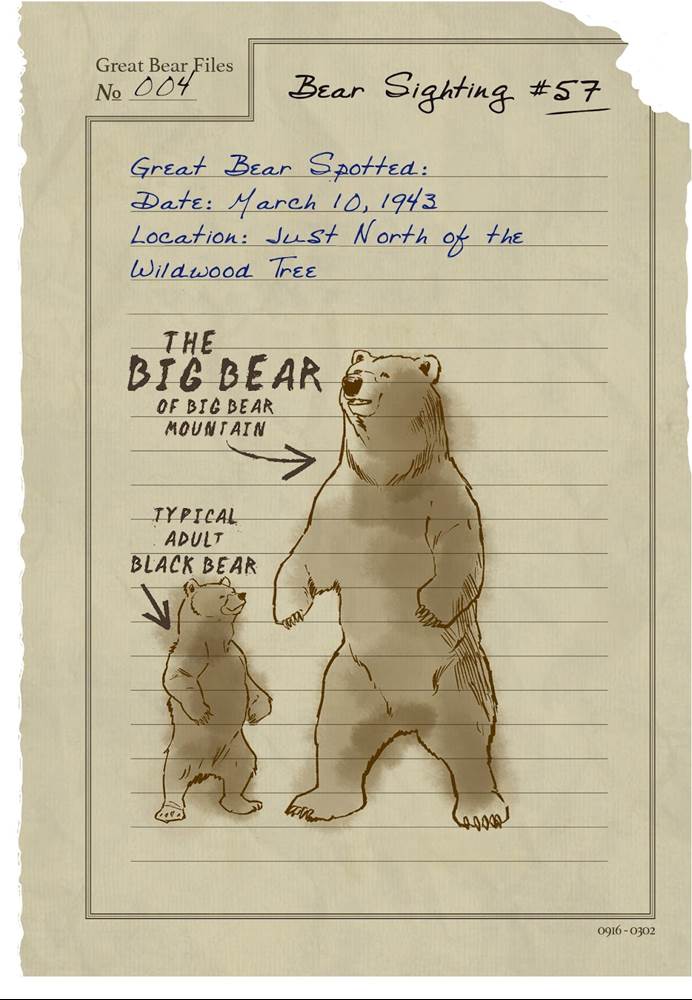 Great Bear Files
No 004
Bear Sighting #57
Great Bear Spotted:
Date: March 10, 1943
Location: Just North of the
Wildwood Tree
THE
BIG BEAR
OF BIG BEAR
MOUNTAIN
TYPICAL
ADULT
BLACK BEAR
0916 - 0302